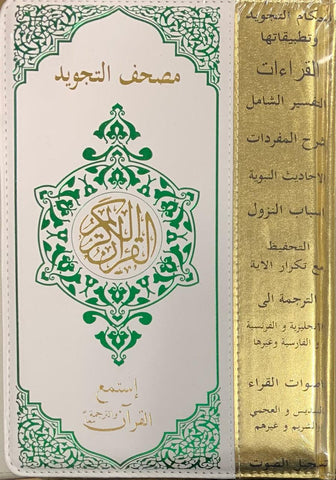 مصحف التجويد
القرآن الكريم
إستمع
القرآن والترجمة معاً
أحكام التجويد
وتطبيقاتها
القراءات
التفسير الشامل
شرح المفردات
الأحاديث النبوية
أسباب النزول
التحفيظ
مع تكرار الآية
الترجمة الى
الانجليزية و الفرنسية
و الفارسية وغيرها
أصوات القراء
السديس و العجمي
الشريم و غيرهم
تسجيل الصوت